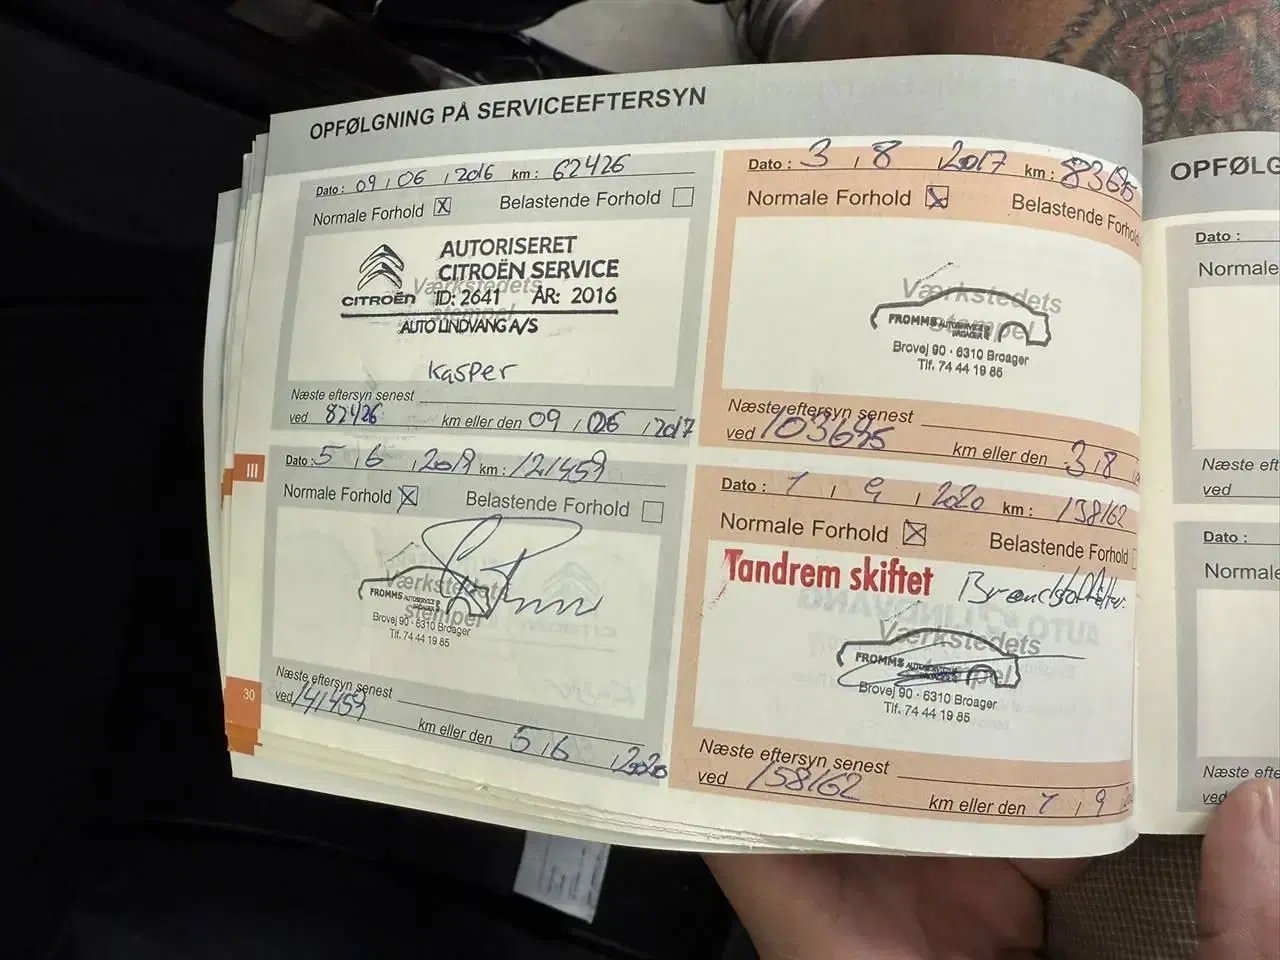 OPFØLGNING PÅ SERVICEEFTERSYN
Dato : 09 , 06 , 2016 km : 62426
Normale Forhold X Belastende Forhold
Værkstedets stempel
AUTORISERET
CITROËN SERVICE
CITROËN ID: 2641 ÅR: 2016
AUTO LINDVANG A/S
Kasper
Næste eftersyn senest
ved 82426 km eller den 09 , 06 , 2017
Dato : 3 , 8 , 2017 km : 83695
Normale Forhold X Belastende Forhold
Værkstedets stempel
FROMMS AUTOSERVICE
BROAGER
Brovej 90 · 6310 Broager
Tlf. 74 44 19 86
Næste eftersyn senest
ved 103695 km eller den 3 , 8 ,
III
Dato : 5 , 6 , 2019 km : 121459
Normale Forhold X Belastende Forhold
Værkstedets stempel
FROMMS AUTOSERVICE
BROAGER
Brovej 90 · 6310 Broager
Tlf. 74 44 19 86
Næste eftersyn senest
ved 141459 km eller den 5 , 6 , 2020
30
Dato : 1 , 9 , 2020 km : 138162
Normale Forhold X Belastende Forhold
Tandrem skiftet Brændstoffilter.
Værkstedets stempel
FROMMS
Brovej 90 · 6310 Broager
Tlf. 74 44 19 86
Næste eftersyn senest
ved 158162 km eller den 1 , 9 ,
OPFØLG
Dato :
Normale
Næste eft
ved
Dato :
Normale
Næste efte
ved